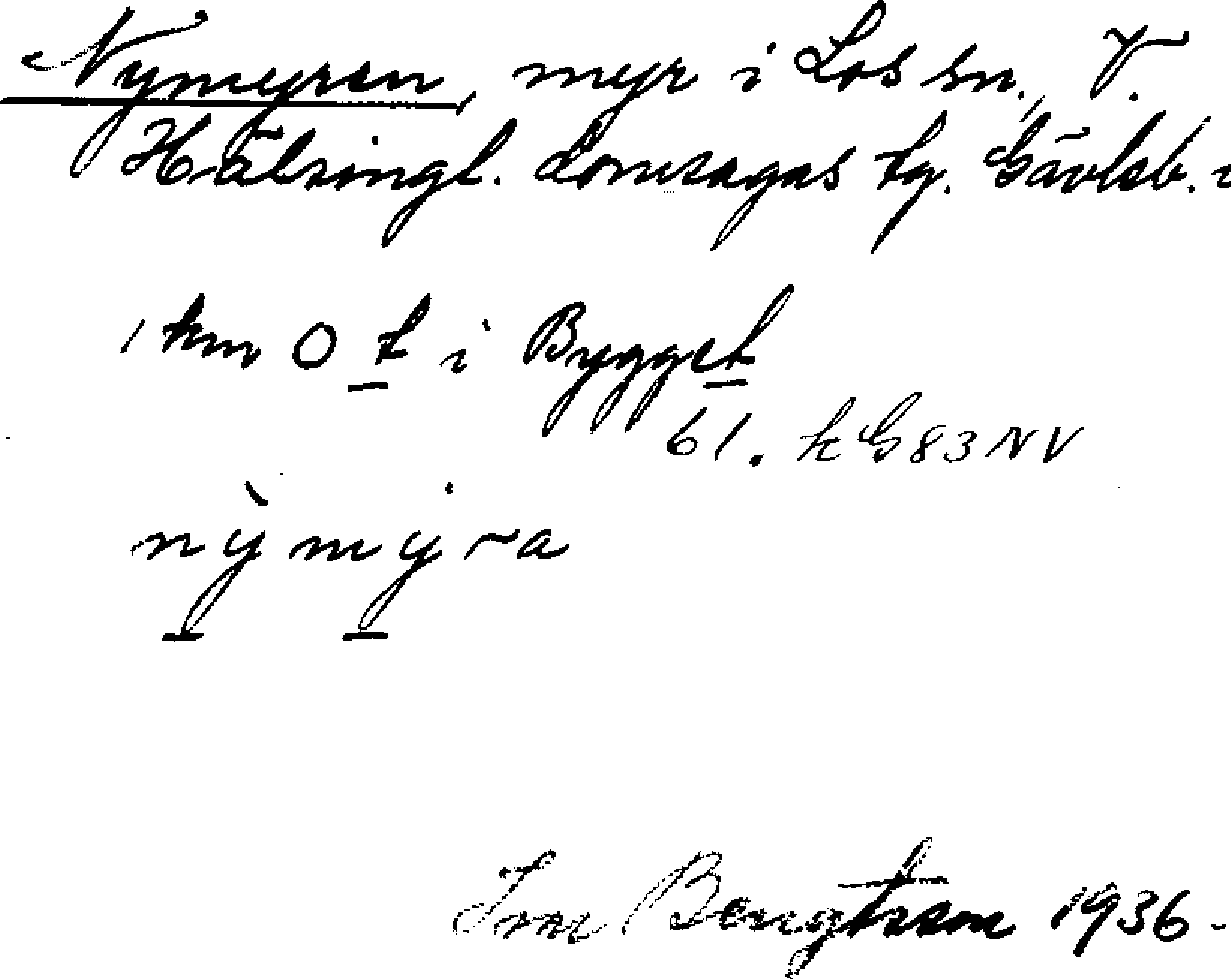 Nymyren, myr i Los sn., V.
Hälsingl. domsagas tg. Gävleb.
1 km O t i Bygget
61. k G83NV
nỳmẏra
Bengtsson 1936.